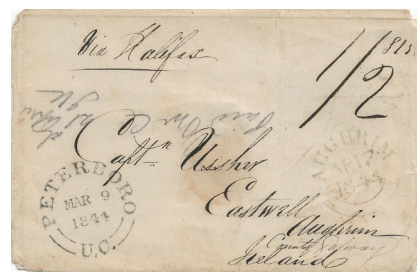 Via Halifax
1/2
Captn Ussher
Eastwell
Aughrim
County Galway
Ireland
PETERBORO
MAR 9
1844
U.C.
AUGHRIM
AP 17
1844
Paid